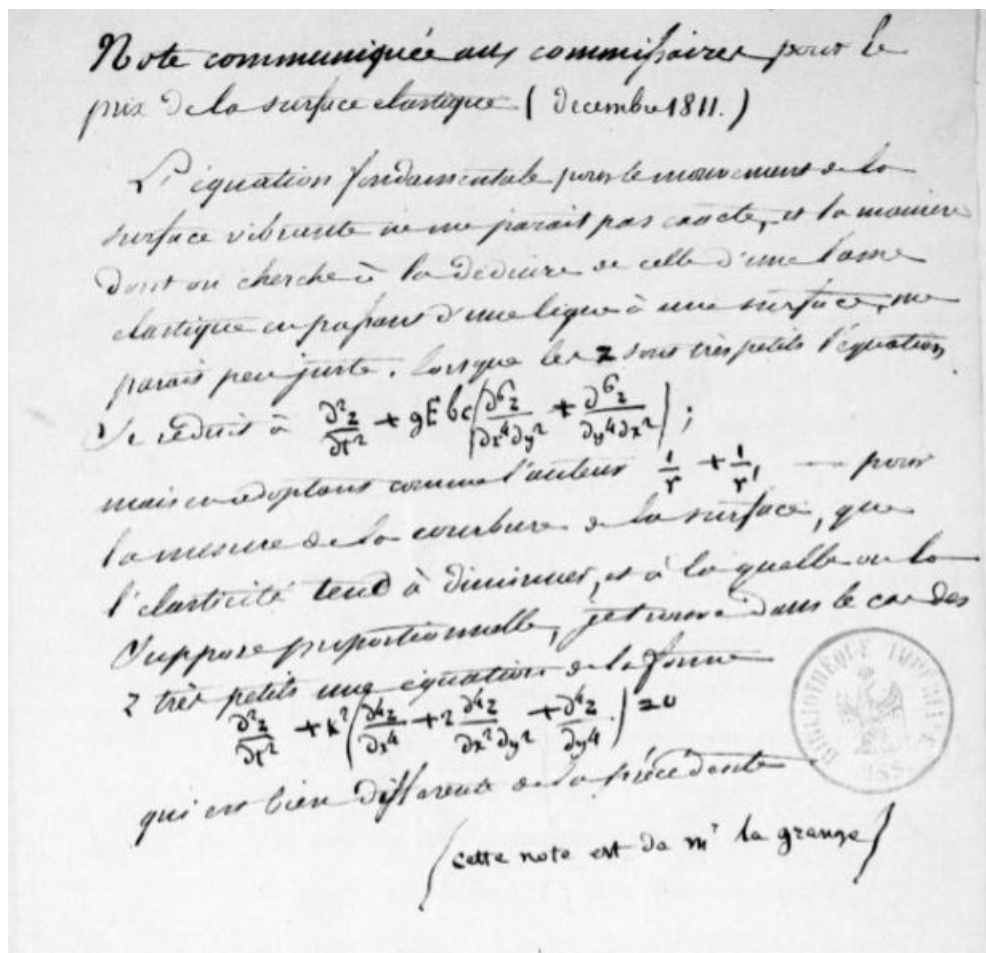 Note communiquée aux commissaires pour le
prix de la surface elastique ( decembre 1811. )
L'équation fondamentale pour le mouvement de la
surface vibrante ne me parait pas exacte, et la maniere
dont on cherche à la deduire de celle d'une lame
elastique en passant d'une ligne à une surface, me
parait peu juste. lorsque les z sont très petits l'équation
se reduit à ∂²z/∂t² + gEbc(∂⁶z/∂x⁴∂y² + ∂⁶z/∂y⁴∂x²) ;
mais en adoptant comme l'auteur 1/r + 1/r, — pour
la mesure de la courbure de la surface, que
l'elasticité tend à diminuer, et à laquelle on la
suppose proportionnelle, je trouve dans le cas des
z très petits une équation de la forme
∂²z/∂t² + k²(∂⁴z/∂x⁴ + 2 ∂⁴z/∂x²∂y² + ∂⁴z/∂y⁴) = 0
qui est bien differente de la précédente
(cette note est de mr la grange)
BIBLIOTHÈQUE IMPÉRIALE